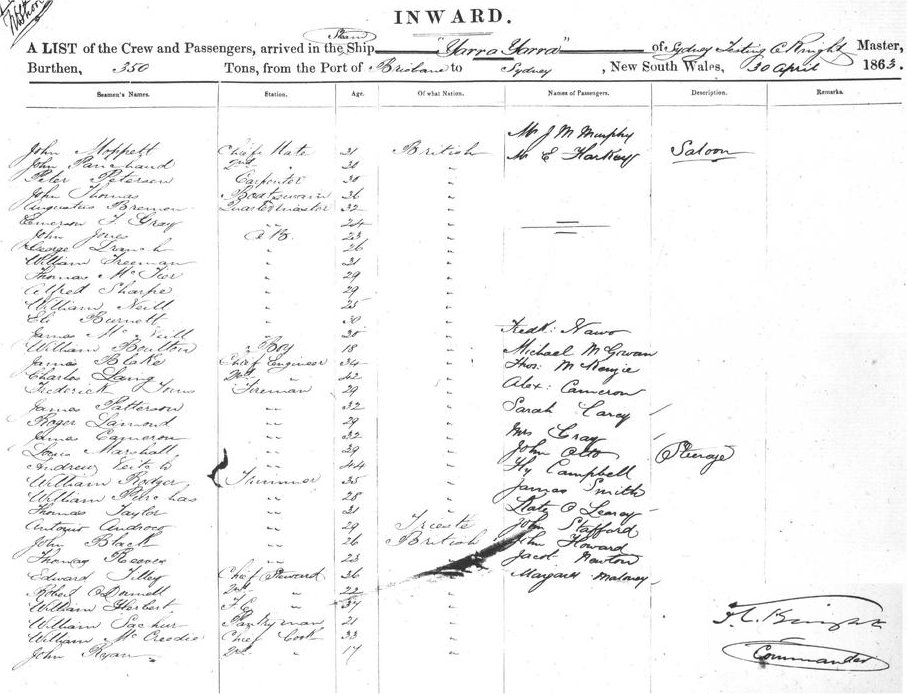 INWARD.
Steam
A LIST of the Crew and Passengers, arrived in the Ship "Yarra Yarra" of Sydney C Knight Master,
Burthen, 350 Tons, from the Port of Brisbane to Sydney, New South Wales, 30 April 1863.
Seamen's Names. Station. Age. Of what Nation. Names of Passengers. Description. Remarks.
Mr J M Murphy
John Moppett Chief Mate 31 British Mr E Saloon
John 2nd " "
Peter Petersen Carpenter 30 "
John Thomas Boatswain 36 "
Augustus Bremon Quartermaster 32 "
Emerson F. Gray " 24 "
John Jones A B. 23 "
George " 26 "
William Freeman " 31 "
Thomas " 29 "
Alfred Sharpe " 29 "
William Neill " 25 "
Eli Burnett " 30 "
James McNeill " 30 " Fredk:
William Boulton Boy 18 " Michael McGowan
James Blake Chief Engineer 34 " Thos: McKenzie
Charles Laing 2nd " 42 " Alex: Cameron
Frederick Fireman 29 "
James Patterson " 32 " Sarah Carey
Roger Lamond " 29 "
James Cameron " 32 " Mrs Gray
Louis Marshall " 29 " John Steerage
Andrew " 44 " Hy Campbell
William Rodger Trimmer 35 " James Smith
William " 28 "
Thomas Taylor " 31 " Kate O Leary
Antonio " 29 Trieste John Stafford
John Black " 26 British John Howard
Thomas Reeves " 23 " Jacob Newton
Edward Tilley Chief Steward 36 " Margaret Maloney
Robert O'Donnell 2nd " 22 "
William Herbert F.C. 37 "
William Pantryman 21 "
William McCredie Chief Cook 33 "
John Ryan 2nd " 17 "
Knight
Commander